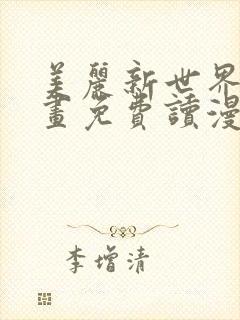 美麗新世界
畫免費讀漫
李增清